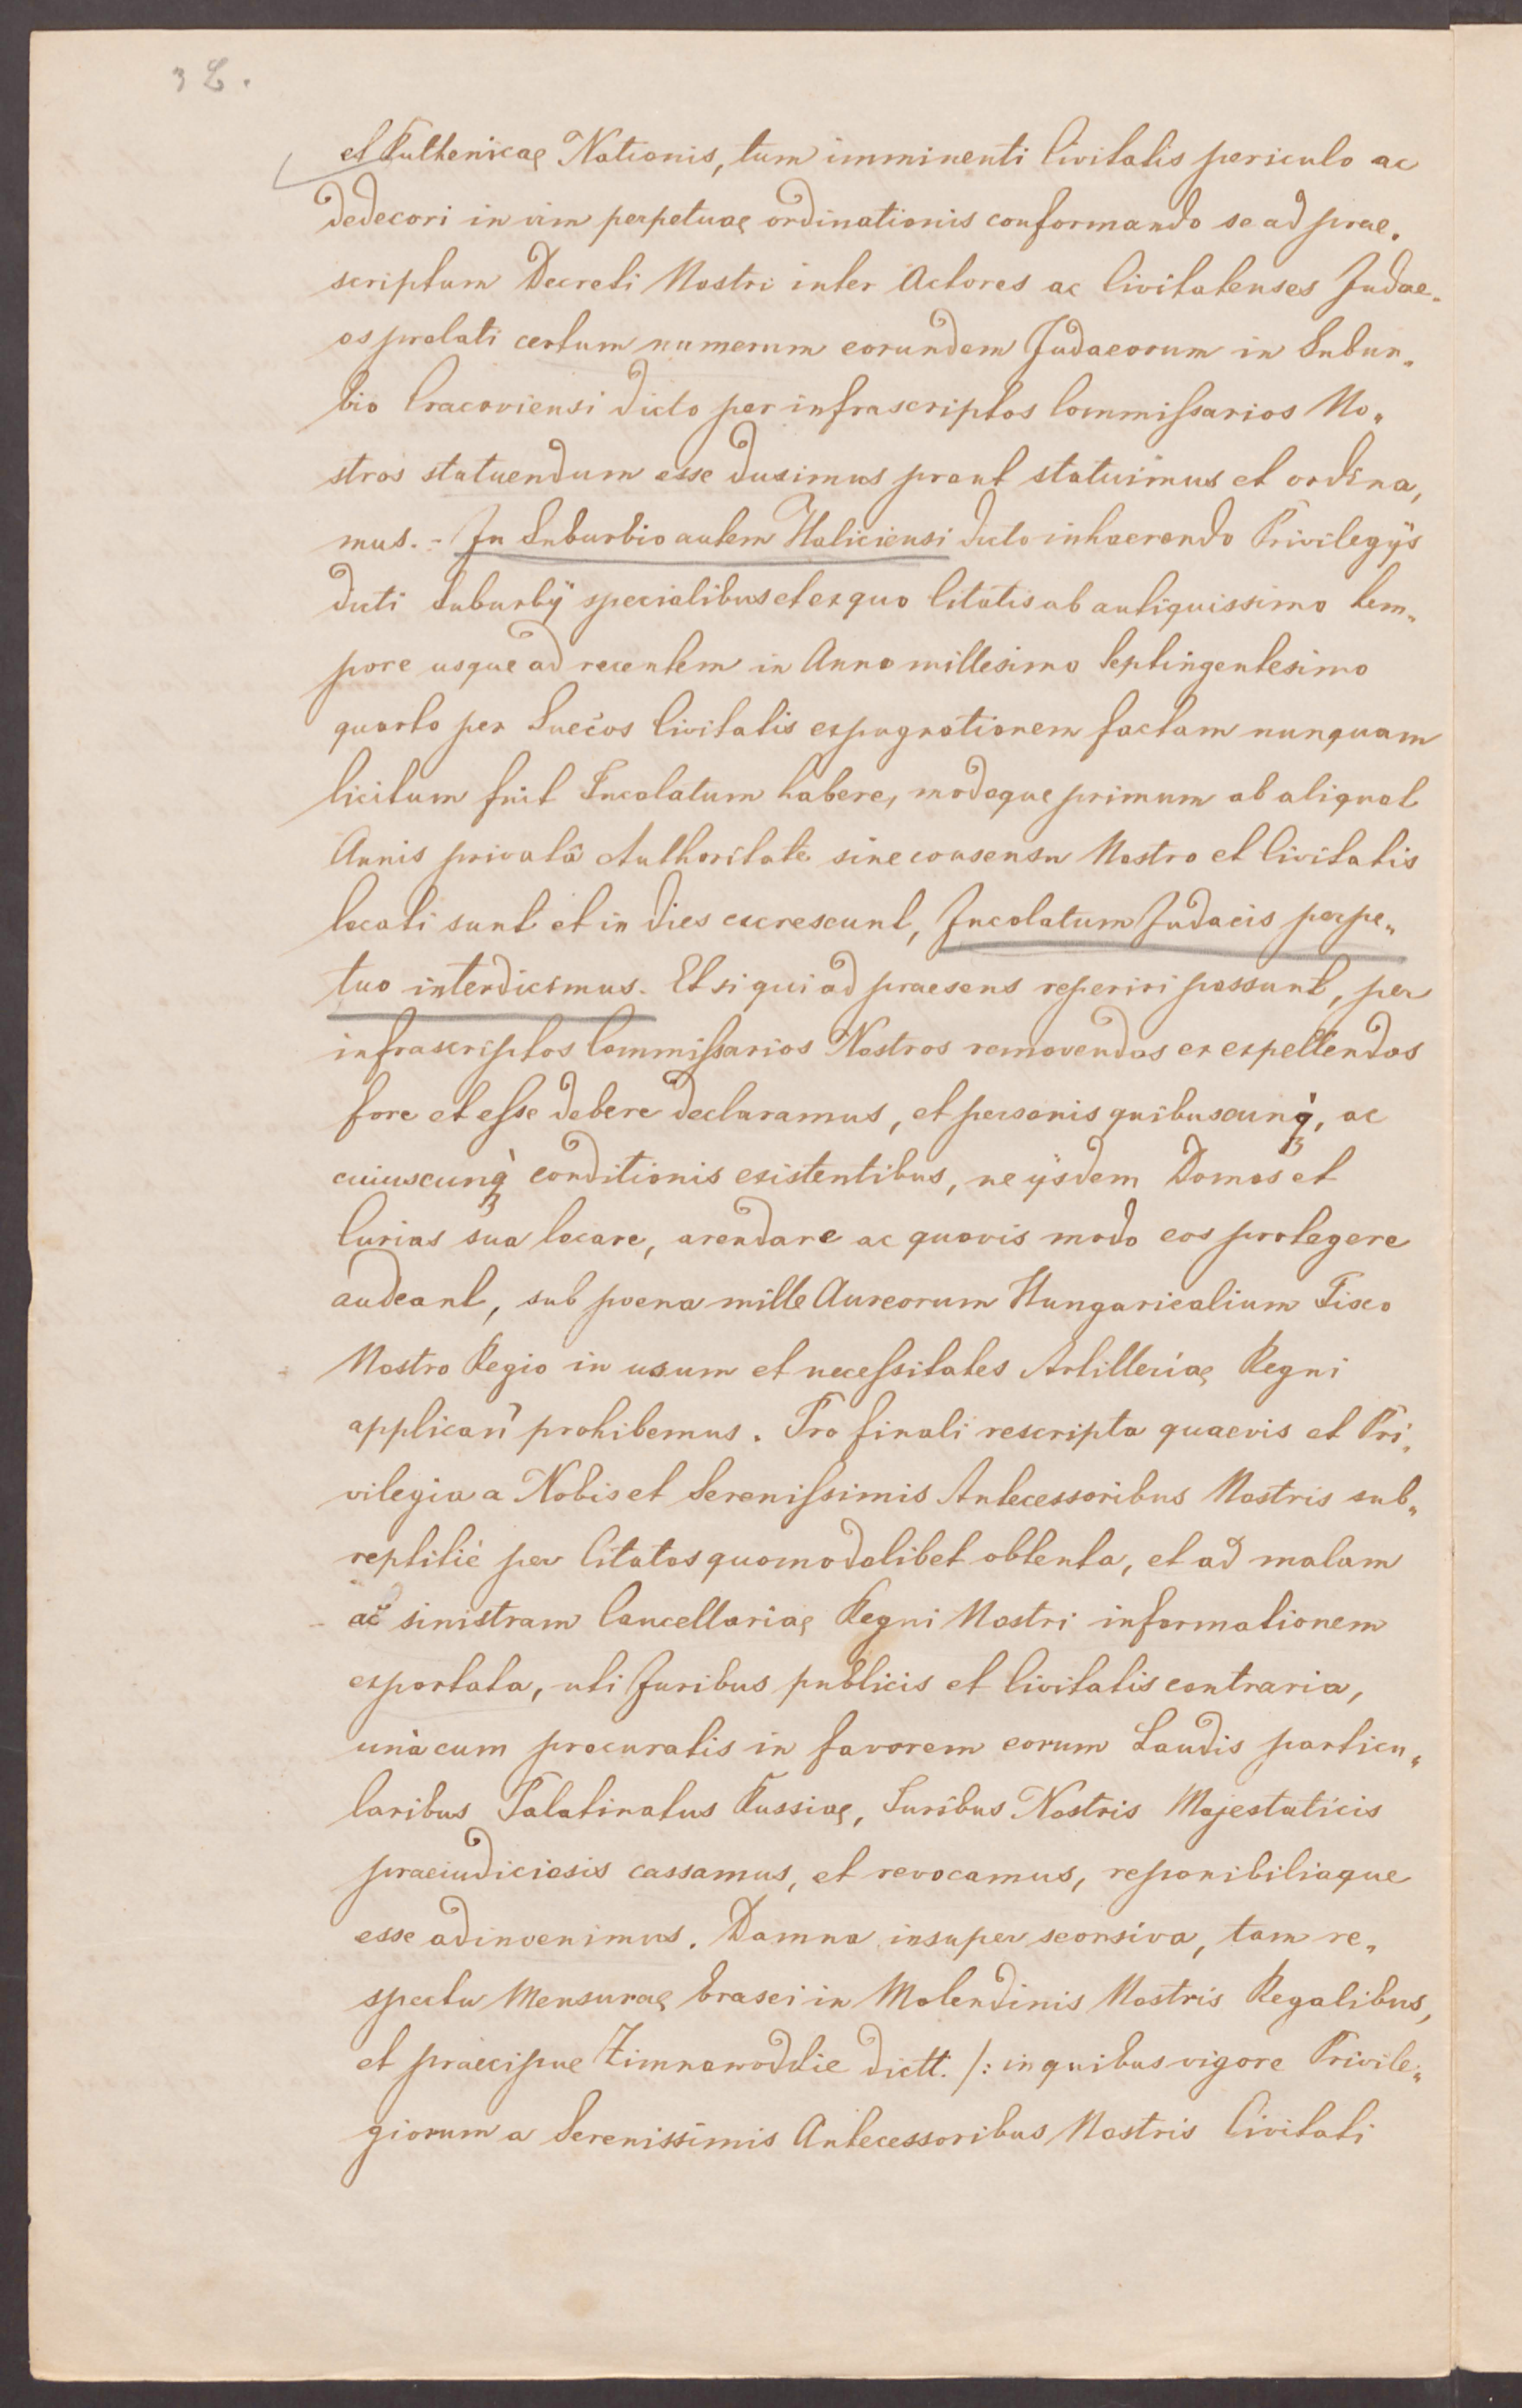 3 L.
et Ruthenicae Nationis, tum imminenti Civitatis periculo ac
dedecori in vim perpetuae ordinationis conformando se ad prae„
scriptum Decreti Nostri inter Actores ac Civitatenses Judae„
os prolati certum numerum eorundem Judaeorum in Subur„
bio Cracoviensi dicto per infrascriptos Commissarios No„
stros statuendum esse duximus prout statuimus et ordina„
mus. - In Suburbio autem Haliciensi dicto inhaerendo Privilegÿs
dicti Suburbÿ specialibus et ex quo Citatis ab antiquissimo tem„
pore usque ad recentem in Anno millesimo Septingentesimo
quarto per Suecos Civitatis expugnationem factam nunquam
licitum fuit Incolatum habere, modoque primum ab aliquot
Annis privatâ Authoritate sine consensu Nostro et Civitatis
locati sunt et in dies excrescunt, Incolatum Judaeis perpe„
tuo interdicimus. Et si qui ad praesens reperiri possunt, per
infrascriptos Commissarios Nostros removendos ex expellendos
fore et esse debere declaramus, et personis quibuscunq, ac
cuiuscunq conditionis existentibus, ne ÿsdem Domos et
Curias sua locare, arendare ac quovis modo eos protegere
audeant, sub poena mille Aureorum Hungaricalium Fisco
Nostro Regio in usum et necessitates Artilleriae Regni
applicari prohibemus. Pro finali rescripta quaevis et Pri„
vilegia a Nobis et Serenissimis Antecessoribus Nostris sub„
reptitiè per Citatos quomodolibet obtenta, et ad malam
ac sinistram Cancellariae Regni Nostri informationem
exportata, uti Juribus publicis et Civitatis contraria,
unà cum procuratis in favorem eorum Laudis particu„
laribus Palatinatus Russiae, Juribus Nostris Majestaticis
praeiudiciosis cassamus, et revocamus, reponibiliaque
esse adinvenimus. Damna insuper seorsiva, tam re„
spectu Mensurae brasei in Molendinis Nostris Regalibus,
et praecipue Zimnowodzkie dictt. /: in quibus vigore Privile„
giorum a Serenissimis Antecessoribus Nostris Civitati